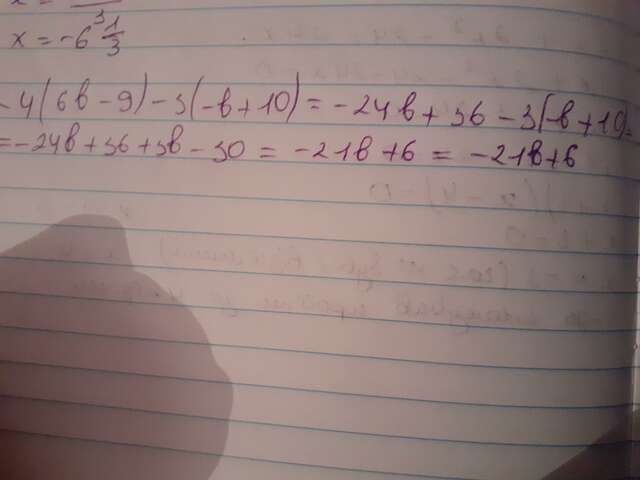 x = -6 1/3
-4(6b-9)-3(-b+10) = -24b+36-3(-b+10)=
=-24b+36+3b-30 = -21b+6 = -21b+6